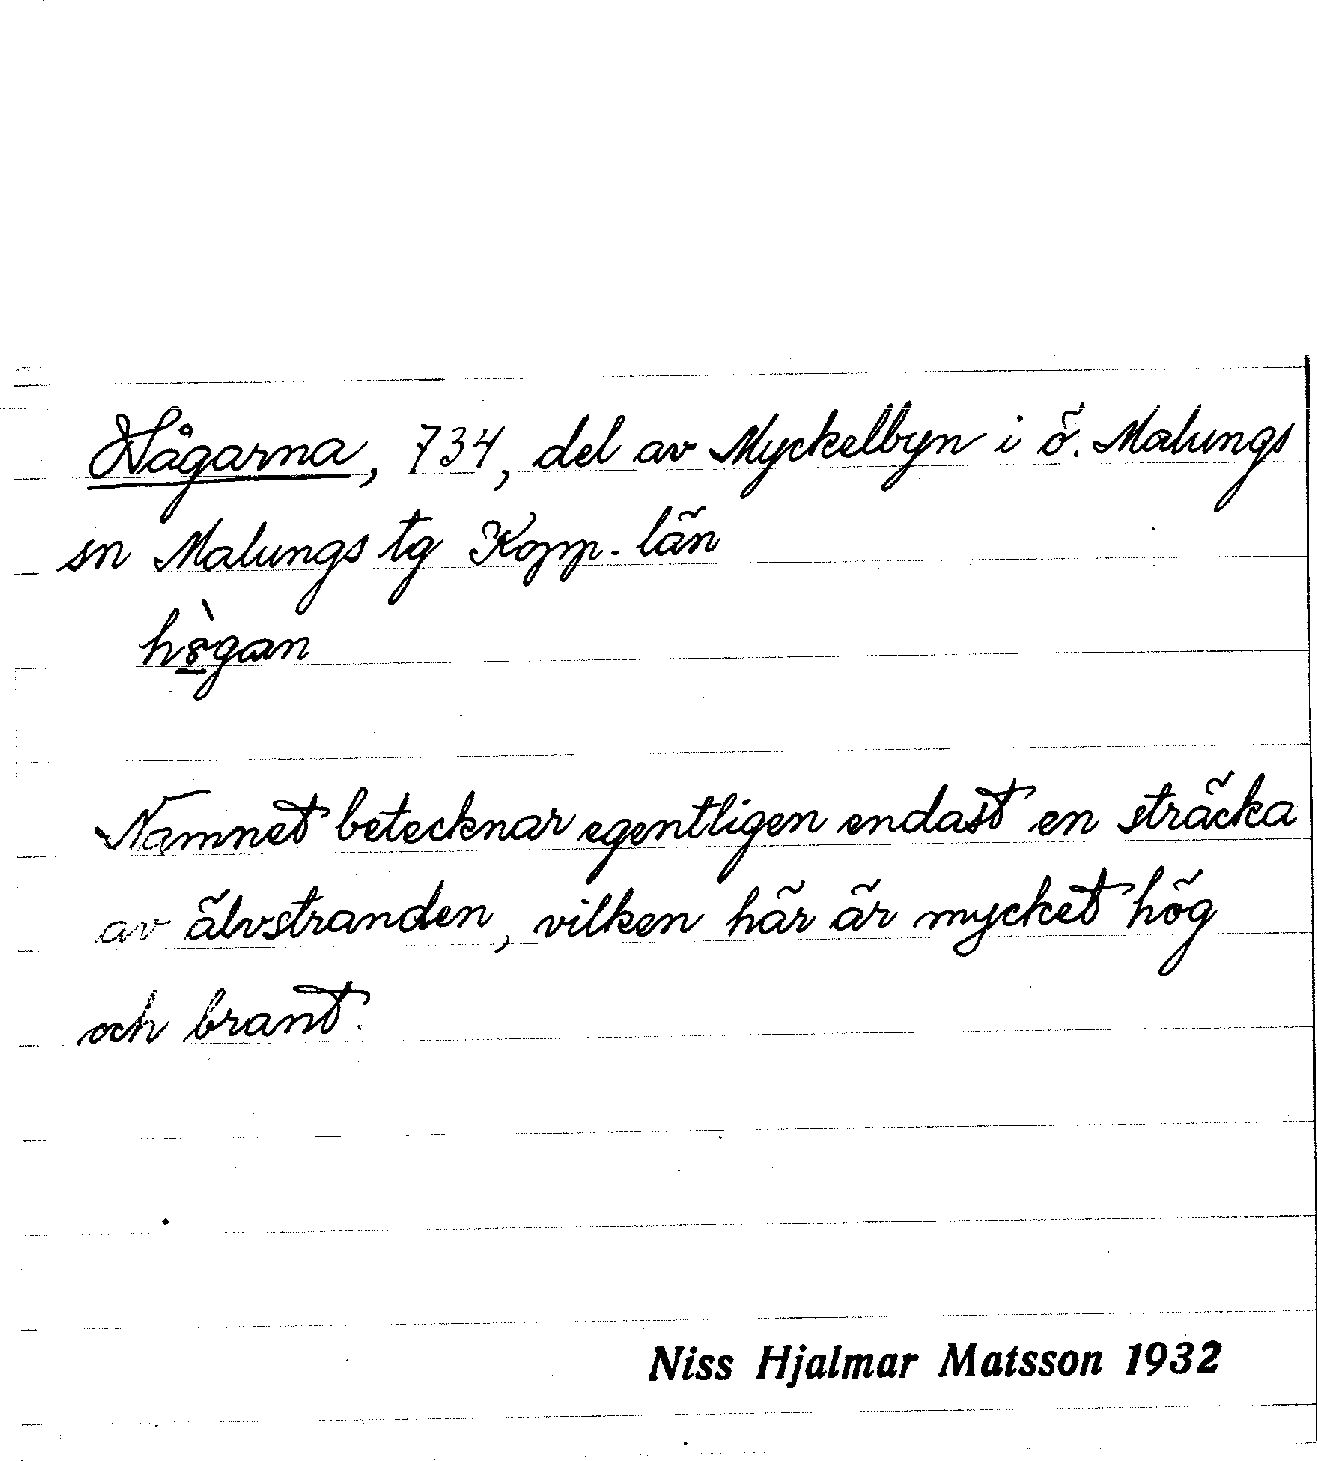 Hågarna, 734, del av Myckelbyn i ö. Malungs
sn Malungs tg Kopp. län

Namnet betecknar egentligen endast en sträcka
av älvstranden, vilken här är mycket hög
och brant.
Niss Hjalmar Matsson 1932